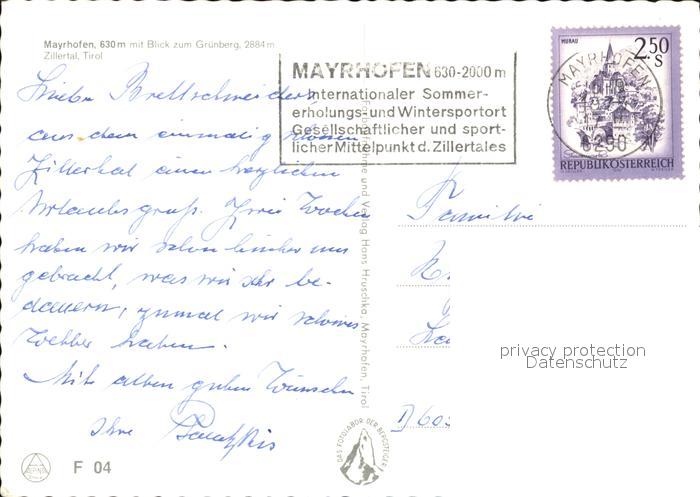 Mayrhofen, 630 m mit Blick zum Grünberg, 2884 m
Zillertal, Tirol
MAYRHOFEN 630-2000 m
Internationaler Sommer-
erholungs- und Wintersportort
Gesellschaftlicher und sport-
licher Mittelpunkt d. Zillertales
MURAU
2.50
S
MAYRHOFEN
6290
REPUBLIK ÖSTERREICH
aus dem einmalig
Zillertal einen herzlichen
Urlaubsgruß. Zwei Wochen
haben wir schon hinter uns
gebracht, was wir sehr be-
dauern, zumal wir schönes
Wetter haben.
Mit allen guten Wünschen
Ihre
und Verlag Hans Hruschka, Mayrhofen, Tirol
Familie
D 60
privacy protection
Datenschutz
DAS FOTOLABOR DER BERGSTEIGER
F 04